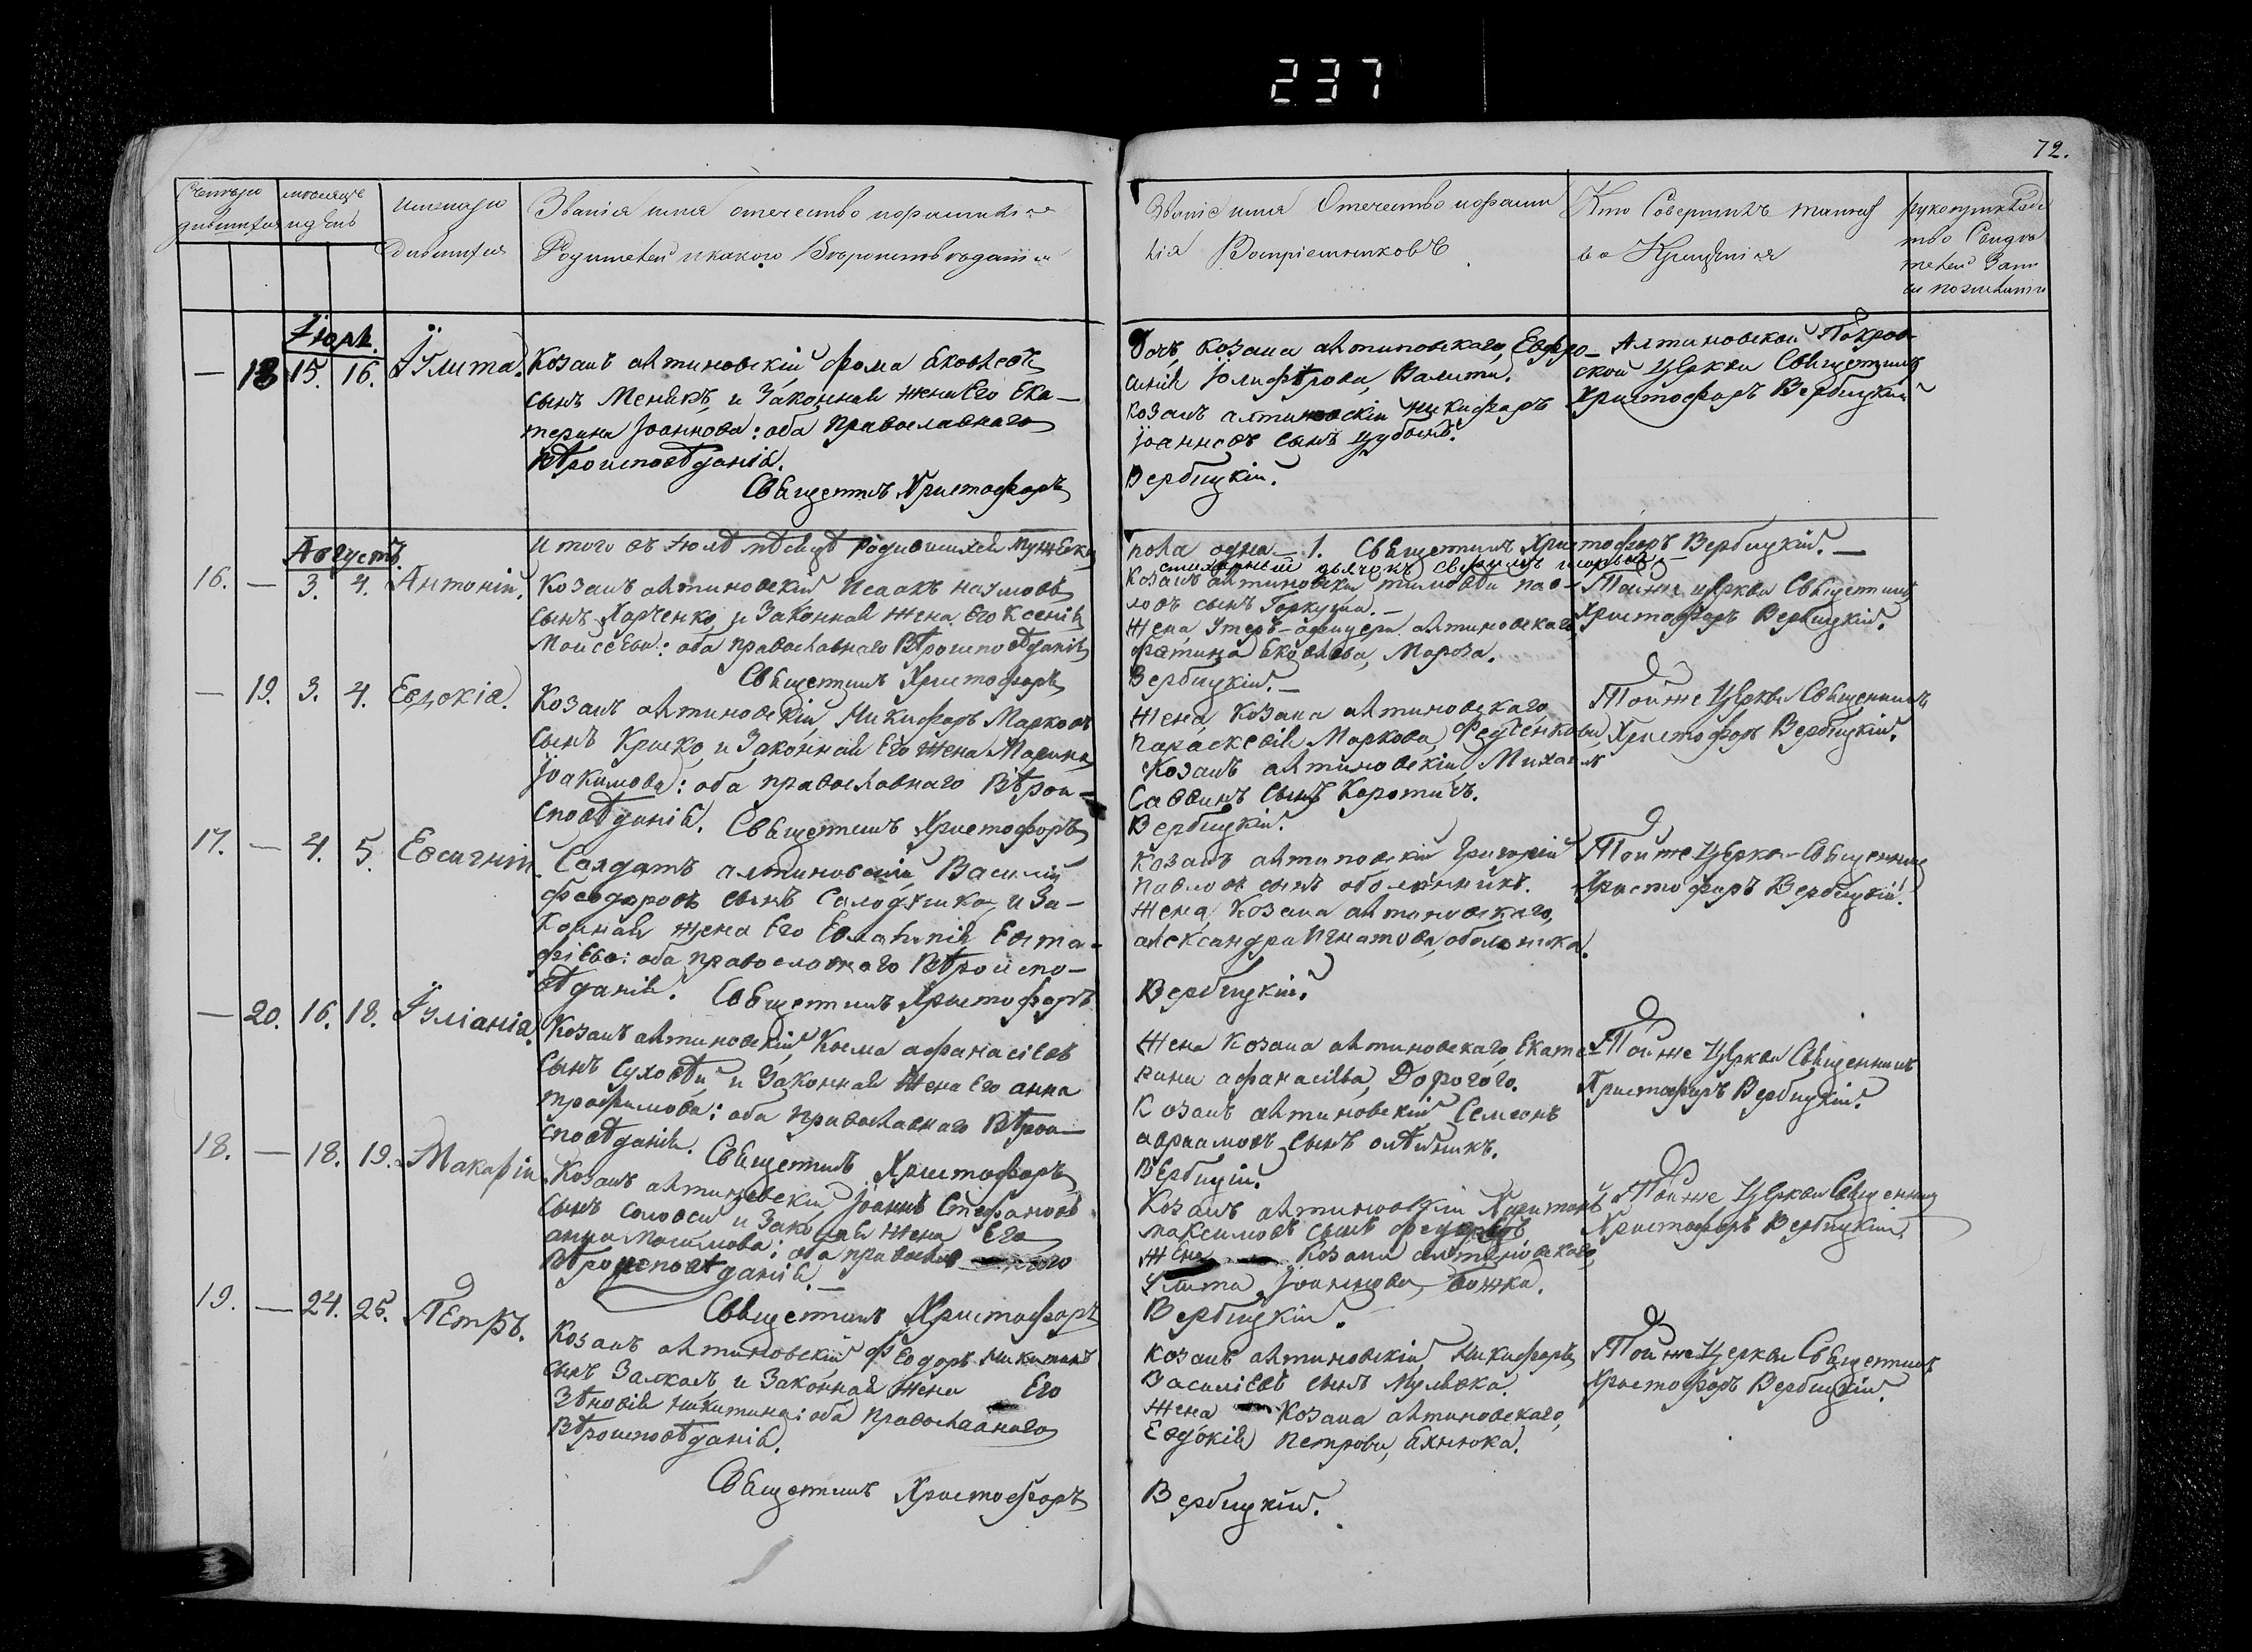 237
72.
Счетъ ро
дившихся
мѣсяцъ
и день
Имена ро
дившихся
Званія имя отечество и фамилія
Родителей и какого Вѣроисповѣданія
Званіе имя Отечество и фами
лія Воспріемниковъ
Кто Совершилъ таинст
во Крещенія
рукоприклад
ство Свидѣ
телей запи
си по желанію
Іюль.
— 18 15. 16. Іулита.
Козакъ алтиновскій Фома Яковлевъ
сынъ Меникъ, и Законная жена Его Ека-
терина Іоаннова: оба православнаго
вѣроисповѣданія.
Священникъ Христофоръ
Дочь Козака алтиновскаго, Евфро-
синія
Козакъ алтиновскій Никифоръ
Іоанновъ сынъ
Вербицкій.
Алтиновской Покров-
ской Церкви Священникъ
Христофоръ Вербицкій
Итого въ Іюлѣ мѣсяцѣ Родившихся мужеска
пола одна — 1. Священникъ Христофоръ Вербицкій. —
Августъ.
16. — 3. 4. Антоній.
Козакъ алтиновскій Исаакъ Наумовъ
сынъ Харченко, и Законная жена Его Ксенія
Моисеева: оба православнаго Вѣроисповѣданія
Священникъ Христофоръ
Козакъ алтиновскій Тимофей Пав-
ловъ сынъ Горкуша. —
Жена алтиновскаго
Яковлева, Мороза.
Вербицкій. —
Тойже церкви Священникъ
Христофоръ Вербицкій.
— 19. 3. 4. Евдокія.
Козакъ алтиновскій Никифоръ Марковъ
сынъ Криско, и Законная Его жена Марина
Іоакимова: оба православнаго Вѣрои-
сповѣданія. Священникъ Христофоръ
Жена Козака алтиновскаго
Параскевія Маркова, Федченкова,
Козакъ алтиновскій Михаилъ
Саввинъ сынъ Коротичъ.
Вербицкій.
Тойже Церкви Священникъ
Христофоръ Вербицкій.
17. — 4. 5. Евсигній
Солдатъ алтиновскій Василій
Феодоровъ сынъ и За-
конная жена Его Евлампія Евста-
фіева: оба православнаго Вѣроиспо-
вѣданія. Священникъ Христофоръ
Козакъ алтиновскій Григорій
Павловъ сынъ
Жена Козака алтиновскаго,
Александра Игнатова,
Вербицкій.
Тойже Церкви Священникъ
Христофоръ Вербицкій.
— 20. 16. 18. Іуліанія.
Козакъ алтиновскій Косма Афанасіевъ
сынъ и Законная жена Его Анна
Трофимова: оба православнаго Вѣрои-
сповѣданія. Священникъ Христофоръ
Жена Козака алтиновскаго, Екате-
рина Афанасіева, Дорогого.
Козакъ алтиновскій Симеонъ
Авраамовъ сынъ
Вербицкій.
Тойже Церкви Священникъ
Христофоръ Вербицкій.
18. — 18. 19. Макарій
Козакъ алтиновскій Іоаннъ Стефановъ
сынъ и Законная жена Его
Анна оба православнаго
Вѣроисповѣданія. —
Священникъ Христофоръ
Козакъ алтиновскій Харитонъ
Максимовъ сынъ
Жена Козака алтиновскаго,
Улита Іоаннова, Божка.
Вербицкій.
Тойже Церкви Священникъ
Христофоръ Вербицкій
19. — 24. 25. Петръ.
Козакъ алтиновскій Феодоръ Никитинъ
сынъ и Законная жена Его
Зѣновія Никитина: оба православнаго
Вѣроисповѣданія.
Священникъ Христофоръ
Козакъ алтиновскій Никифоръ
Василіевъ сынъ
Жена Козака алтиновскаго,
Евдокія Петрова,
Вербицкій.
Тойже Церкви Священникъ
Христофоръ Вербицкій.